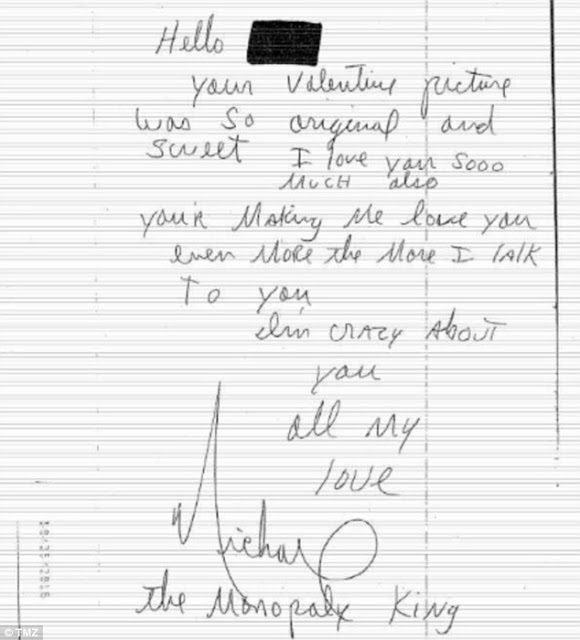 Hello
your Valentine picture
was so original and
sweet I love you sooo
much also
your Making Me love you
even More the More I talk
To you
I'm crazy About
you
all my
love
Michael
the Monopaly King
© TMZ